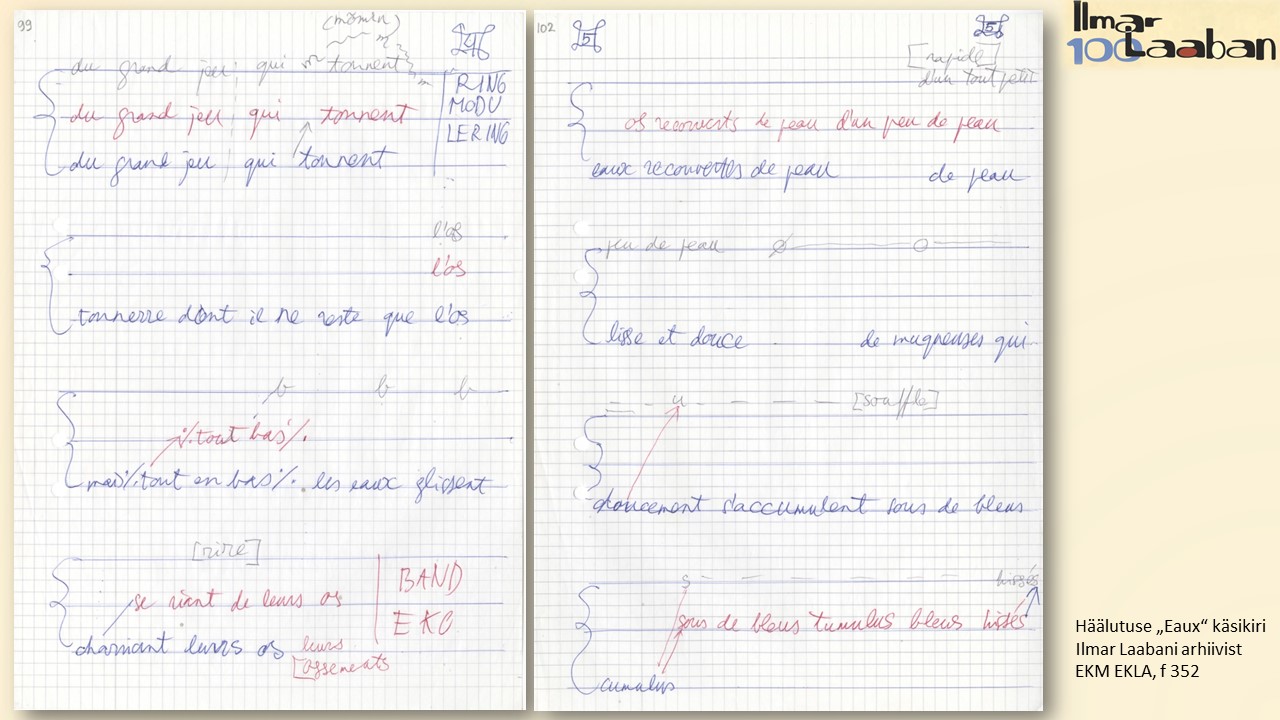 99
(mõmin)
4
du grand jeu, qui tonnent
RING
MODU
LERING
du grand jeu, qui tonnent
du grand jeu, qui tonnent
l'os
l'os
tonnerre dont il ne reste que l'os
b b b
·/.tout bas·/.
mais·/.tout en bas·/. les eaux glissent
[rire]
BAND
EKO
se riant de leurs os
charriant leurs os leurs
[ossements
102
5
5
[rapide]
d'un tout petit
os recouverts de peau d'un peu de peau
eaux recouvertes de peau de peau
peu de peau
lisse et douce de muqueuses qui
u [souffle]
doucement s'accumulent sous de bleus
s hissés
sous de bleus tumulus bleus hissés
cumulus
Ilmar
100 Laaban
Häälutuse „Eaux“ käsikiri
Ilmar Laabani arhiivist
EKM EKLA, f 352